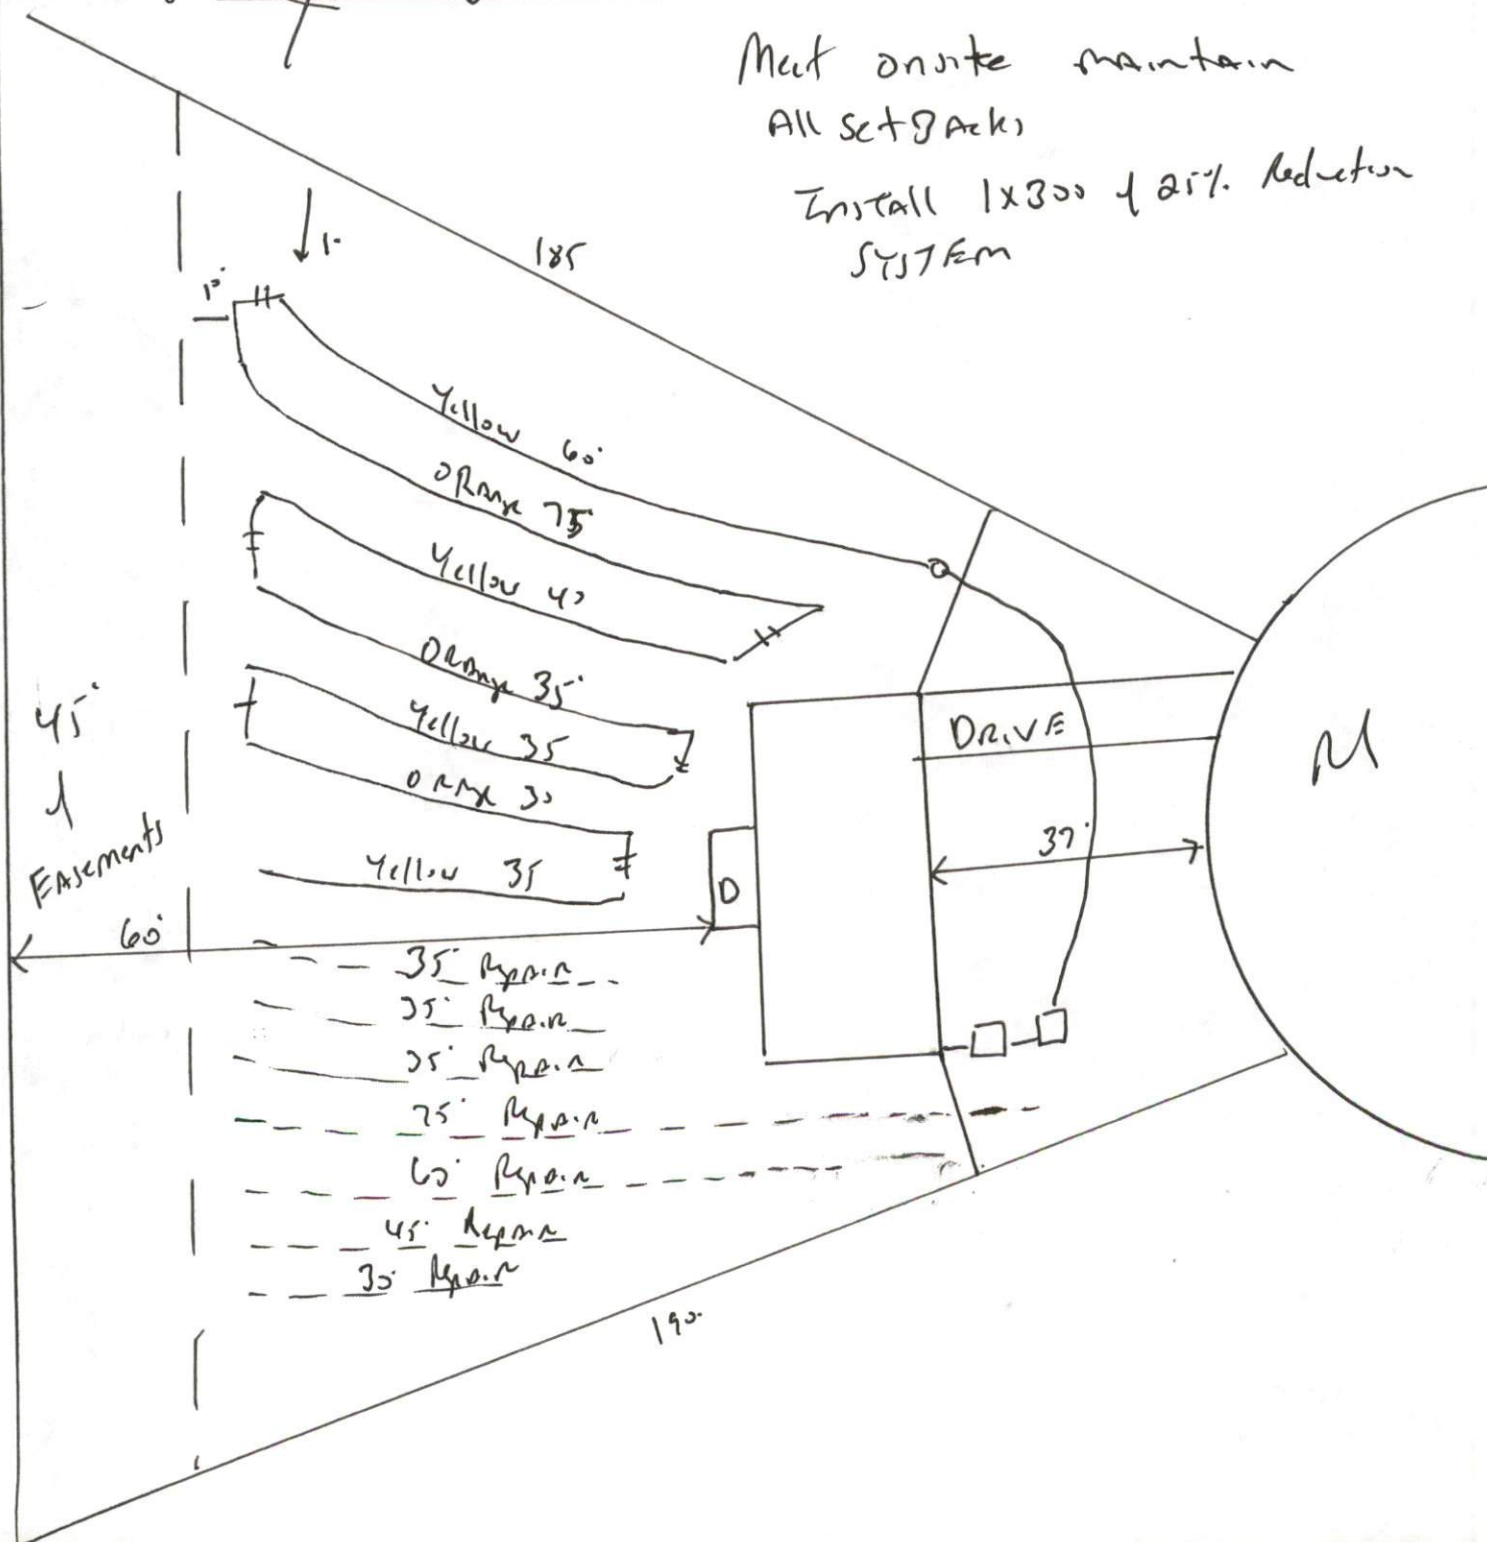 Meet onsite maintain
All SetBacks
Install 1x300 of 25% Reduction
SYSTEM
185
10'
Yellow 60'
ORange 75
Yellow 40
ORange 35'
Yellow 35
ORange 30
Yellow 35
45'
Easements
60'
D
DRIVE
37'
M
35' Repair
35' Repair
35' Repair
75' Repair
60' Repair
45' Repair
30' Repair
190'